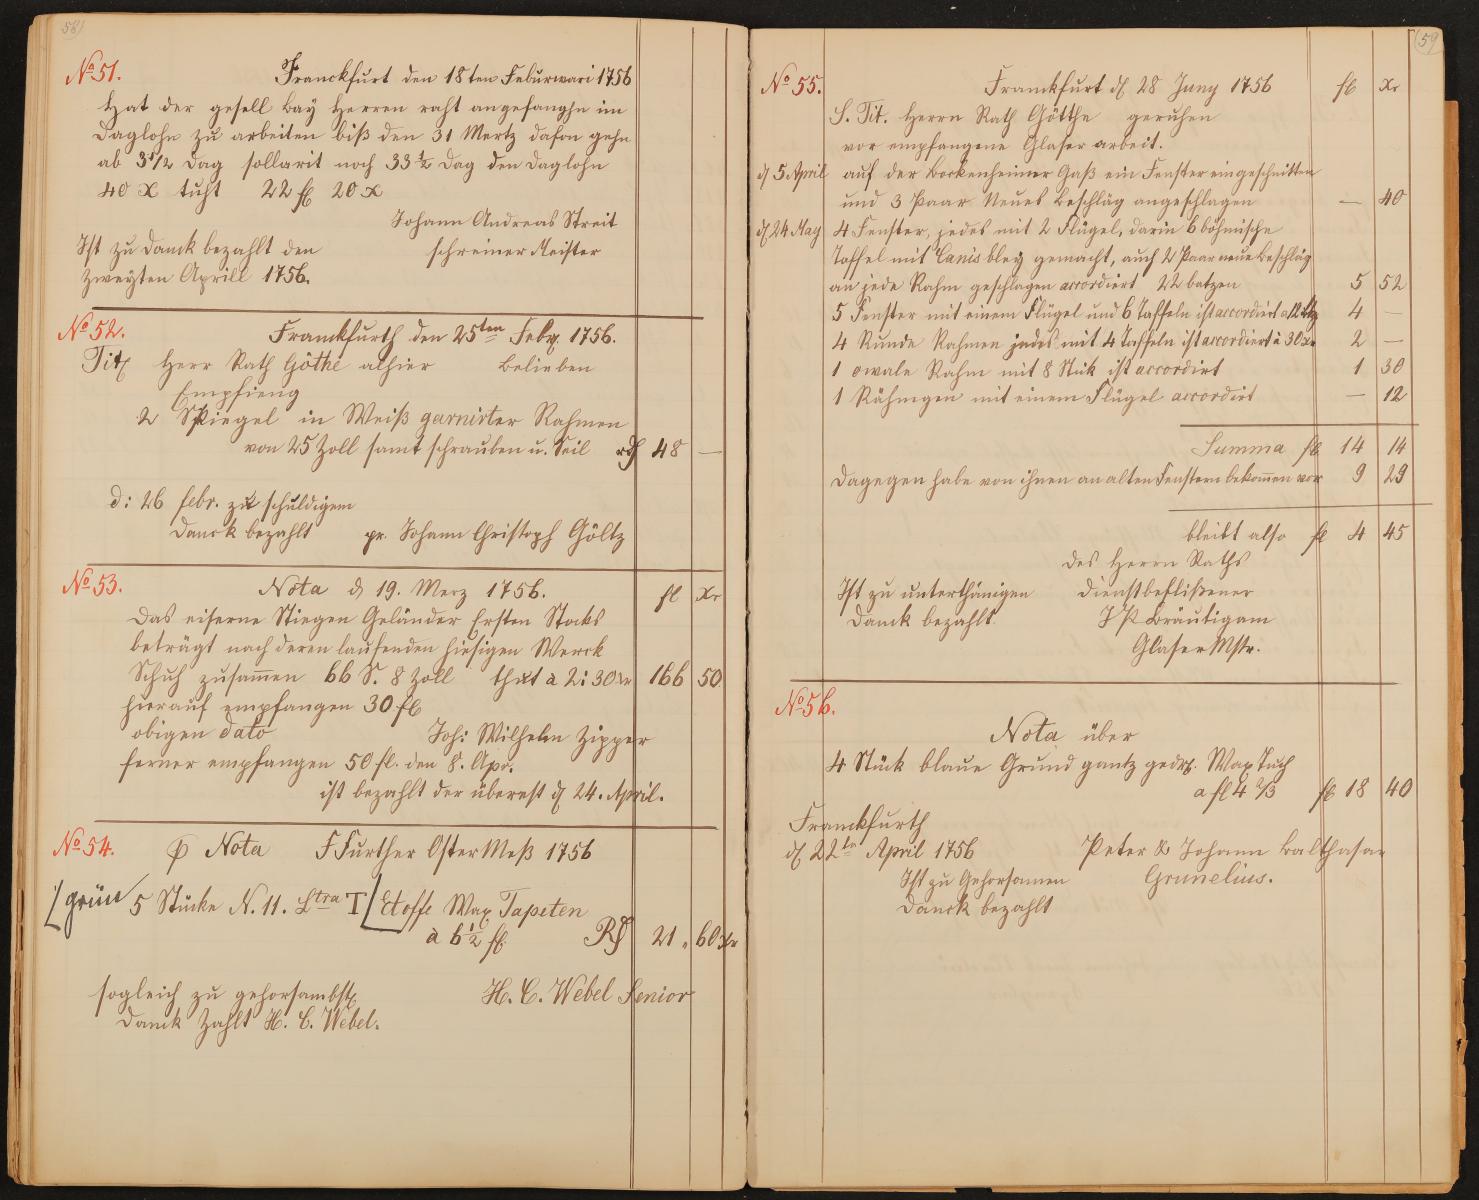 58
No 51.
Franckfurt den 18ten Feburwari 1756
Hat der gesell bay Herren raht angefanghn im
Daglohn zu arbeiten biß den 31 Mertz dafon gehn
ab 3 1/2 Dag sollarit noch 33 1/2 Dag den Daglohn
40 x tuht 22 fl 20 x
Johann Andreas Streit
schreiner Meister
Ist zu Danck bezahlt den
zweyten Aprill 1756.
No 52.
Franckfurth den 25ten Febr. 1756.
Tit Herr Rath Göthe alhier belieben
Empfieng
2 Spiegel in Weiß garnirter Rahmen
von 25 Zoll samt schrauben u. Seil 48 —
d: 26 febr. zu schuldigem
Danck bezahlt pr. Johann Christoph Göltz
No 53.
Nota d 19. Merz 1756. fl Xr
Das eiserne Stiegen Geländer Ersten Stocks
beträgt nach deren laufenden hiesigen Werck
Schuh zusammen 66 S. 8 Zoll thut a 2:30 Xr 166 50
hierauf empfangen 30 fl
obigen dato Joh: Wilhelm Zipper
ferner empfangen 50 fl. den 8. Apr.
ist bezahlt der überest d 24. April.
No 54.
Nota FFurther Oster Meß 1756
[grün 5 Stücke N. 11. Ltra T [Etoffe Wax Tapeten
à 6 1/2 fl. 21 " 60 Xr
sogleich zu gehorsambst H. C. Webel Senior
Danck Zahlt H. C. Webel.
59
No 55.
Franckfurt d 28 Juny 1756 fl Xr
S. Tit. Herrn Rath Götthe geruhen
vor empfangene Glaser arbeit.
d 5 April auf der Bockenheimer Gaß ein Fenster eingeschnitten
und 3 Paar Neues Beschläg angeschlagen — 40
d 24 May 4 Fenster, jedes mit 2 Flügel, darin 6 böhmische
Taffel mit Canis bley gemacht, auch 2 Paar neue Beschläg
an jede Rahm geschlagen accordiert 22 batzen 5 52
5 Fenster mit einem Flügel und 6 Taffeln ist accordirt a 12 btz 4 —
4 Runde Rahmen jedes mit 4 Taffeln ist accordiert à 30 Xr 2 —
1 owale Rahm mit 8 Stük ist accordirt 1 30
1 Rähmgen mit einem Flügel accordirt — 12
Summa fl 14 14
Dagegen habe von ihnen an alten Fenstern bekommen vor 9 29
bleibt also fl 4 45
des Herrn Raths
Ist zu unterthänigen Dienstbeflißener
Danck bezahlt. J P Bräutigam
Glaser Mstr.
No 56.
Nota über
4 Stück blaue Grund gantz gedr. Wax Tuch
a fl 4 2/3 fl 18 40
Franckfurth
d 22te April 1756 Peter & Johann Balthasar
Ist zu Gehorsamen Grunelius.
Danck bezahlt